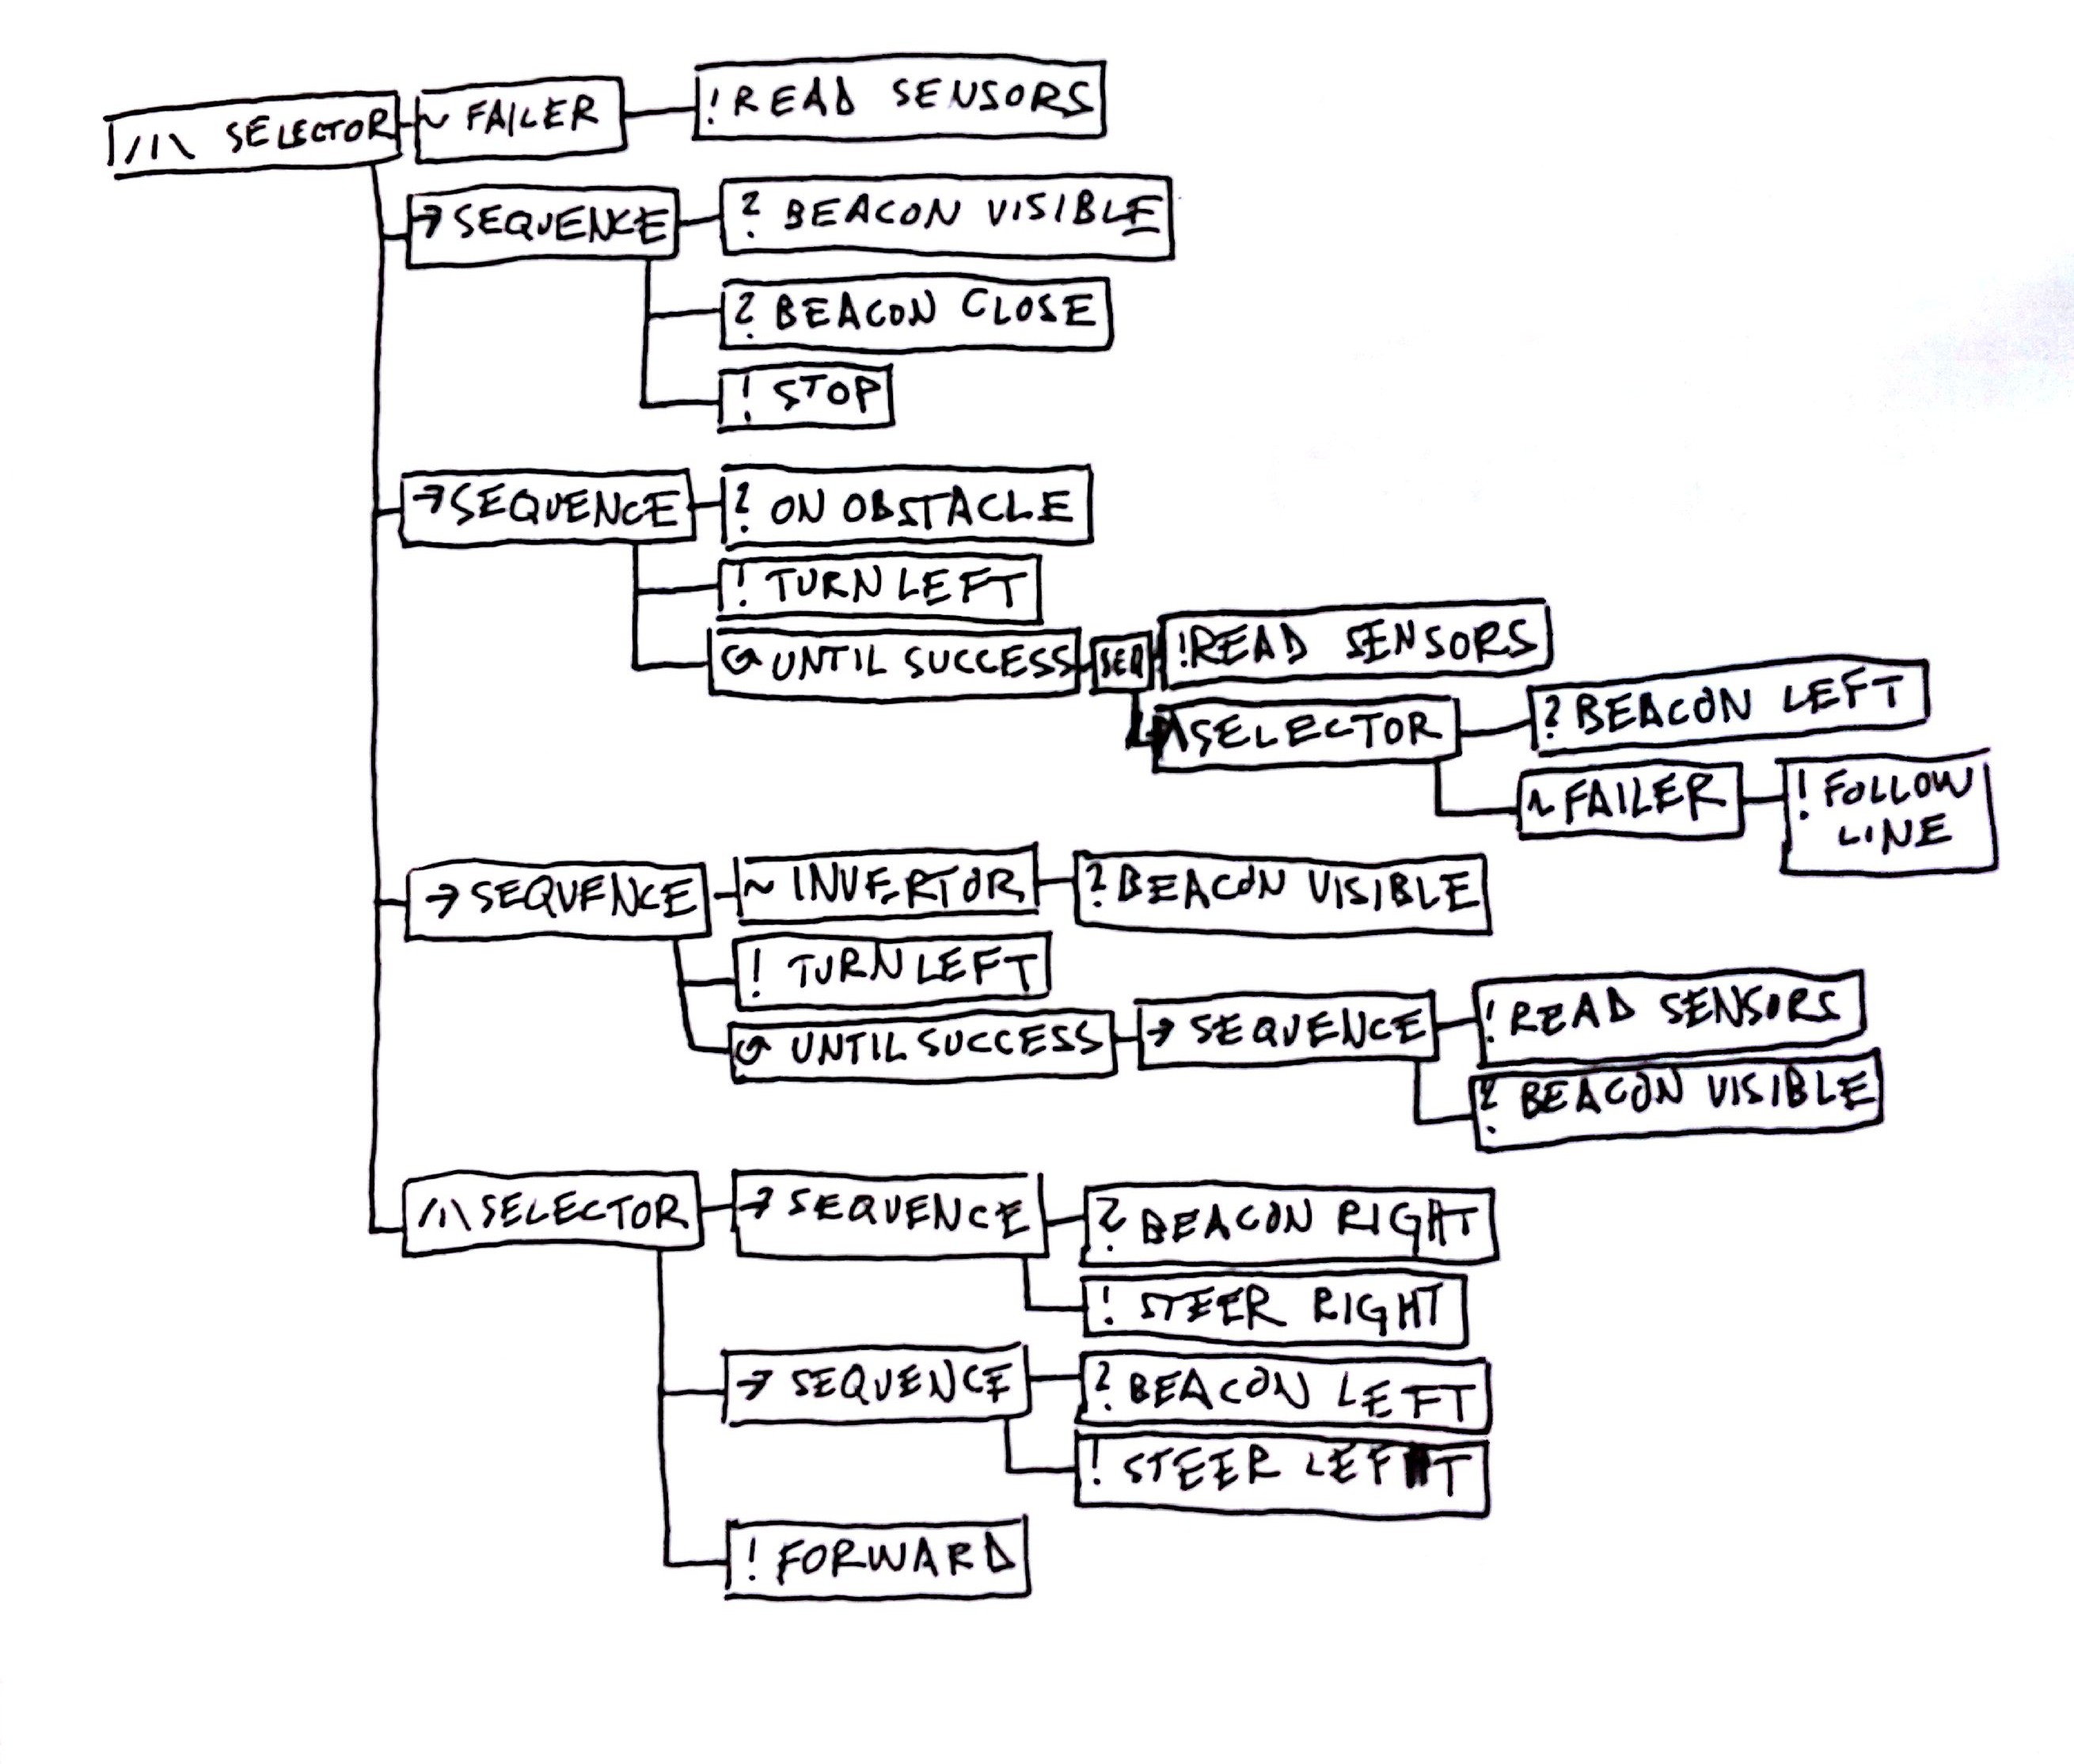 /|\ SELECTOR
~ FAILER
! READ SENSORS
→ SEQUENCE
? BEACON VISIBLE
? BEACON CLOSE
! STOP
→ SEQUENCE
? ON OBSTACLE
! TURN LEFT
↺ UNTIL SUCCESS
SEQ
! READ SENSORS
/|\ SELECTOR
? BEACON LEFT
~ FAILER
! FOLLOW
LINE
→ SEQUENCE
~ INVERTOR
? BEACON VISIBLE
! TURN LEFT
↺ UNTIL SUCCESS
→ SEQUENCE
! READ SENSORS
? BEACON VISIBLE
/|\ SELECTOR
→ SEQUENCE
? BEACON RIGHT
! STEER RIGHT
→ SEQUENCE
? BEACON LEFT
! STEER LEFT
! FORWARD